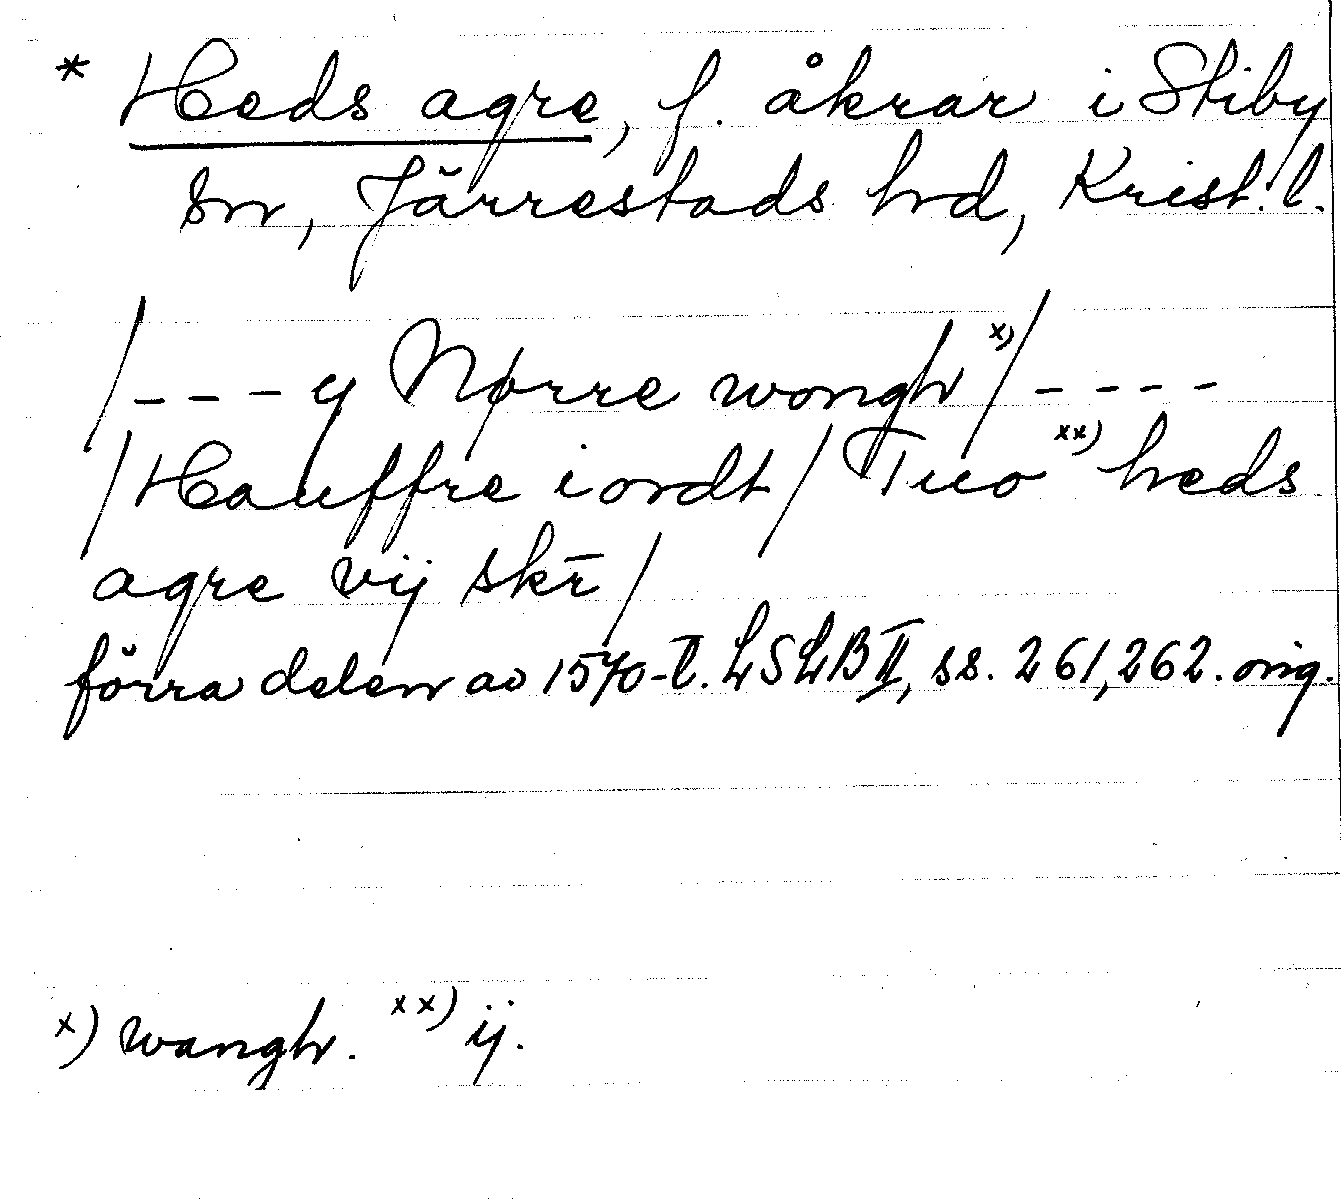 * Heds agre, f. åkrar i Stiby
sn, Järrestads hd, Krist. l.
/ - - - y Nørre wongh x) / - - - -
/ Hauffre iordt / Tuo xx) heds
agre vij skr̄ /
förra delen av 1570-t. LSLB II, ss. 261, 262. orig.
x) wangh. xx) ij.